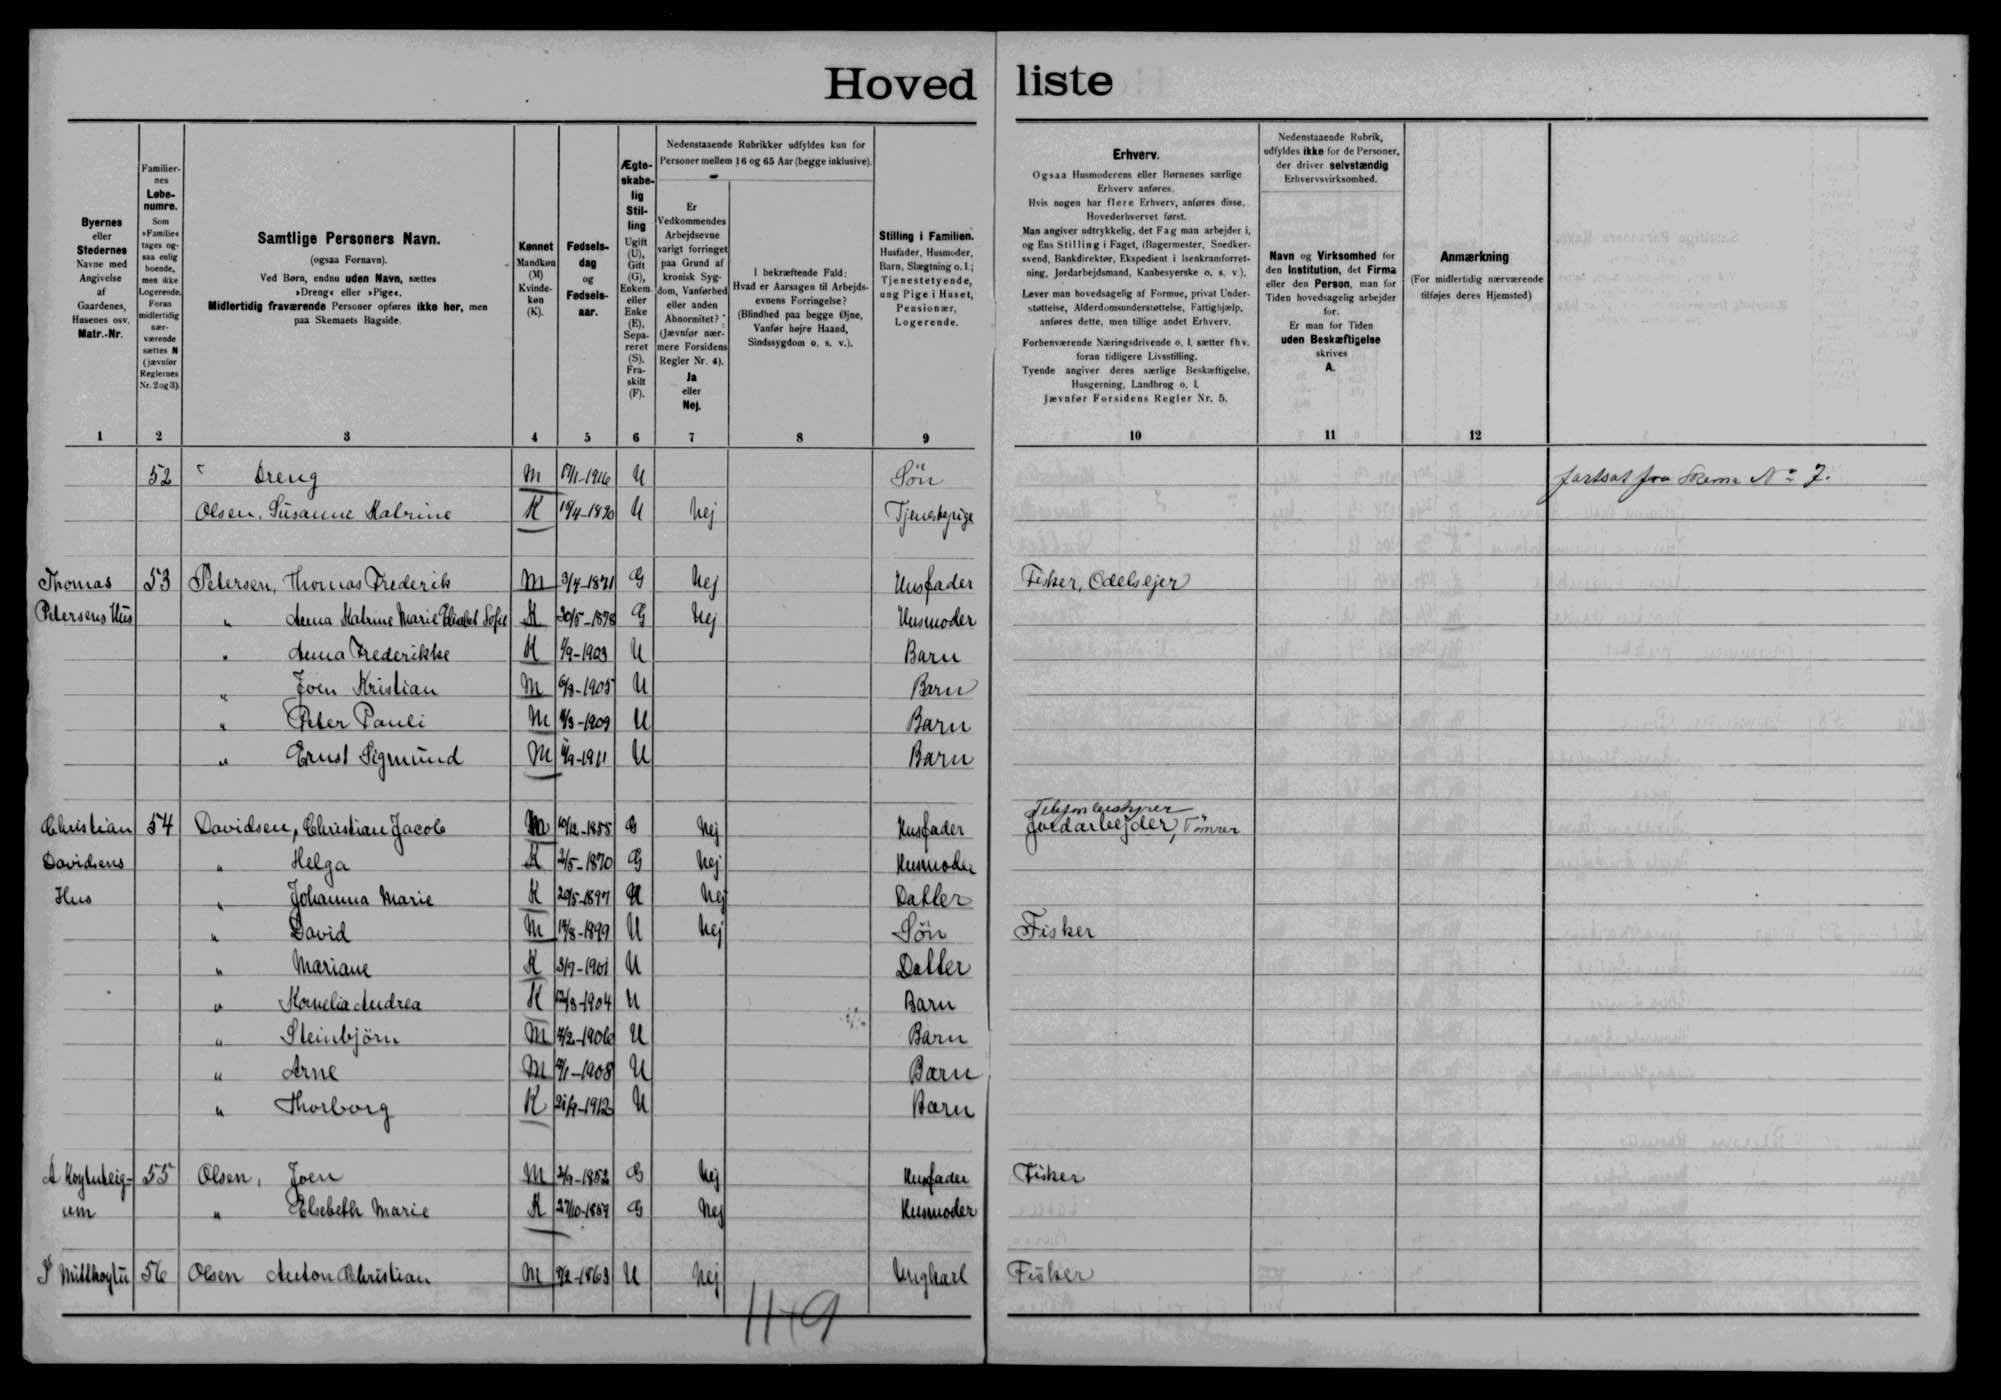 Hoved liste
Byernes
eller
Stedernes
Navne med
Angivelse
af
Gaardenes,
Husenes osv.
Matr.-Nr.
Familier-
nes
Løbe-
numre.
Som
»Familie«
tages og-
saa enlig
boende,
men ikke
Logerende.
Foran
midlertidig
nær-
værende
sættes N
(jævnfør
Reglernes
Nr. 2 og 3).
Samtlige Personers Navn.
(ogsaa Fornavn).
Ved Børn, endnu uden Navn, sættes
»Dreng« eller »Pige«.
Midlertidig fraværende Personer opføres ikke her, men
paa Skemaets Bagside.
Kønnet
Mandkøn
(M)
Kvinde-
køn
(K).
Fødsels-
dag
og
Fødsels-
aar.
Ægte-
skabe-
lig
Stil-
ling
Ugift
(U),
Gift
(G),
Enkem.
eller
Enke
(E),
Sepa-
reret
(S),
Fra-
skilt
(F).
Nedenstaaende Rubrikker udfyldes kun for
Personer mellem 16 og 65 Aar (begge inklusive).
Er
Vedkommendes
Arbejdsevne
varigt forringet
paa Grund af
kronisk Syg-
dom, Vanførhed
eller anden
Abnormitet?
(Jævnfør nær-
mere Forsidens
Regler Nr. 4).
Ja
eller
Nej.
I bekræftende Fald:
Hvad er Aarsagen til Arbejds-
evnens Forringelse?
(Blindhed paa begge Øjne,
Vanfør højre Haand,
Sindssygdom o. s. v.).
Stilling i Familien.
Husfader, Husmoder,
Barn, Slægtning o. l.;
Tjenestetyende,
ung Pige i Huset,
Pensionær,
Logerende.
Erhverv.
Ogsaa Husmoderens eller Børnenes særlige
Erhverv anføres.
Hvis nogen har flere Erhverv, anføres disse,
Hovederhvervet først.
Man angiver udtrykkelig, det Fag man arbejder i,
og Ens Stilling i Faget, (Bagermester, Snedker-
svend, Bankdirektør, Ekspedient i Isenkramforret-
ning, Jordarbejdsmand, Kaabesyerske o. s. v.).
Lever man hovedsagelig af Formue, privat Under-
støttelse, Alderdomsunderstøttelse, Fattighjælp,
anføres dette, men tillige andet Erhverv.
Forhenværende Næringsdrivende o. l. sætter fhv.
foran tidligere Livsstilling.
Tyende angiver deres særlige Beskæftigelse,
Husgerning, Landbrug o. l.
Jævnfør Forsidens Regler Nr. 5.
Nedenstaaende Rubrik,
udfyldes ikke for de Personer,
der driver selvstændig
Erhvervsvirksomhed.
Navn og Virksomhed for
den Institution, det Firma
eller den Person, man for
Tiden hovedsagelig arbejder
for.
Er man for Tiden
uden Beskæftigelse
skrives
A.
Anmærkning
(For midlertidig nærværende
tilføjes deres Hjemsted)
1 2 3 4 5 6 7 8 9 10 11 12
52 " Dreng M 1916 U Søn fortsat fra Skema No 7.
Olsen, Susanne Katrine K U Nej Tjenestepige
Thomas 53 Petersen, Thomas Frederik M 3/4-1871 G Nej Husfader Fisker, Odelsejer
Petersens Hus " Anna Katrine Marie Elisabet Sofie K 30/5-1878 G Nej Husmoder
" Anna Frederikke K 1/9-1903 U Barn
" Joen Kristian M 6/3-1905 U Barn
" Peter Pauli M 1909 U Barn
" Ernst Sigmund M 1911 U Barn
Telefonbestyrer
Christian 54 Davidsen, Christian Jacob M 10/12-1855 G Nej Husfader Jordarbejder, Tømrer
Davidsens " Helga K 2/5-1870 G Nej Husmoder
Hus " Johanna Marie K 20/5-1897 U Nej Datter
" David M 18/8-1899 U Nej Søn Fisker
" Mariane K 3/9-1901 U Datter
" Kornelia Andrea K 12/3-1904 U Barn
" Steinbjörn M 1906 U Barn
" Arne M 1908 U Barn
" Thorborg K 21/9-1912 U Barn
55 Olsen, Joen M 2/9-1852 G Nej Husfader Fisker
um " Elsebeth Marie K 27/10-1857 G Nej Husmoder
56 Olsen Anton Christian M 1863 U Nej Ungkarl Fisker
11+9